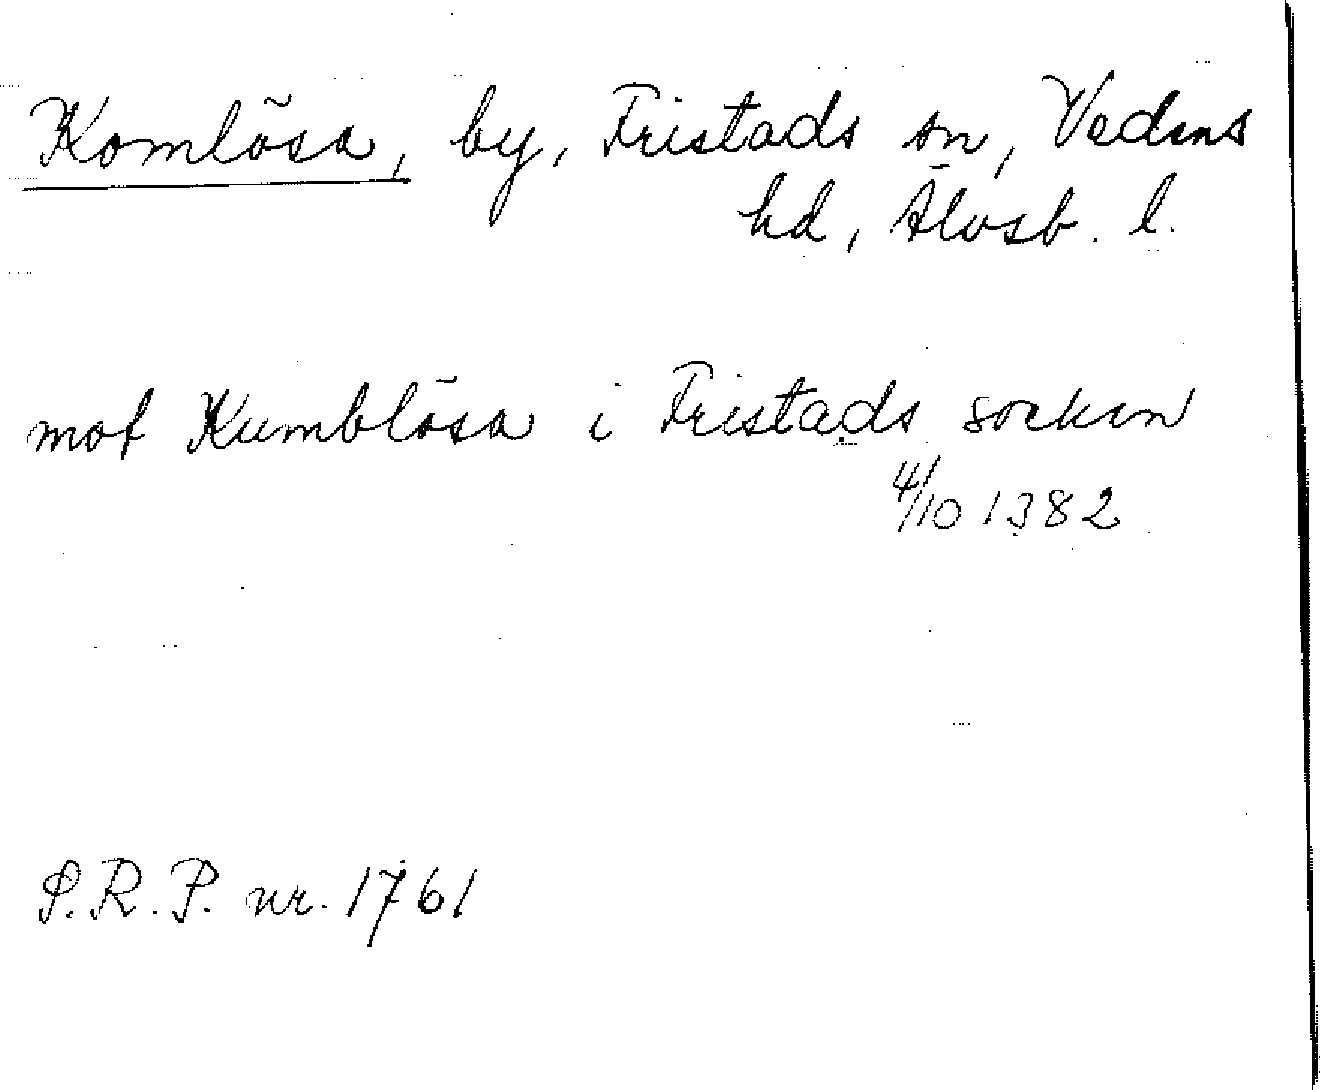 Komlösa, by, Fristads sn, Vedens
hd, Älvsb. l.
mot Kumblösa i Fristads socken
4/10 1382
S.R.P. nr. 1761